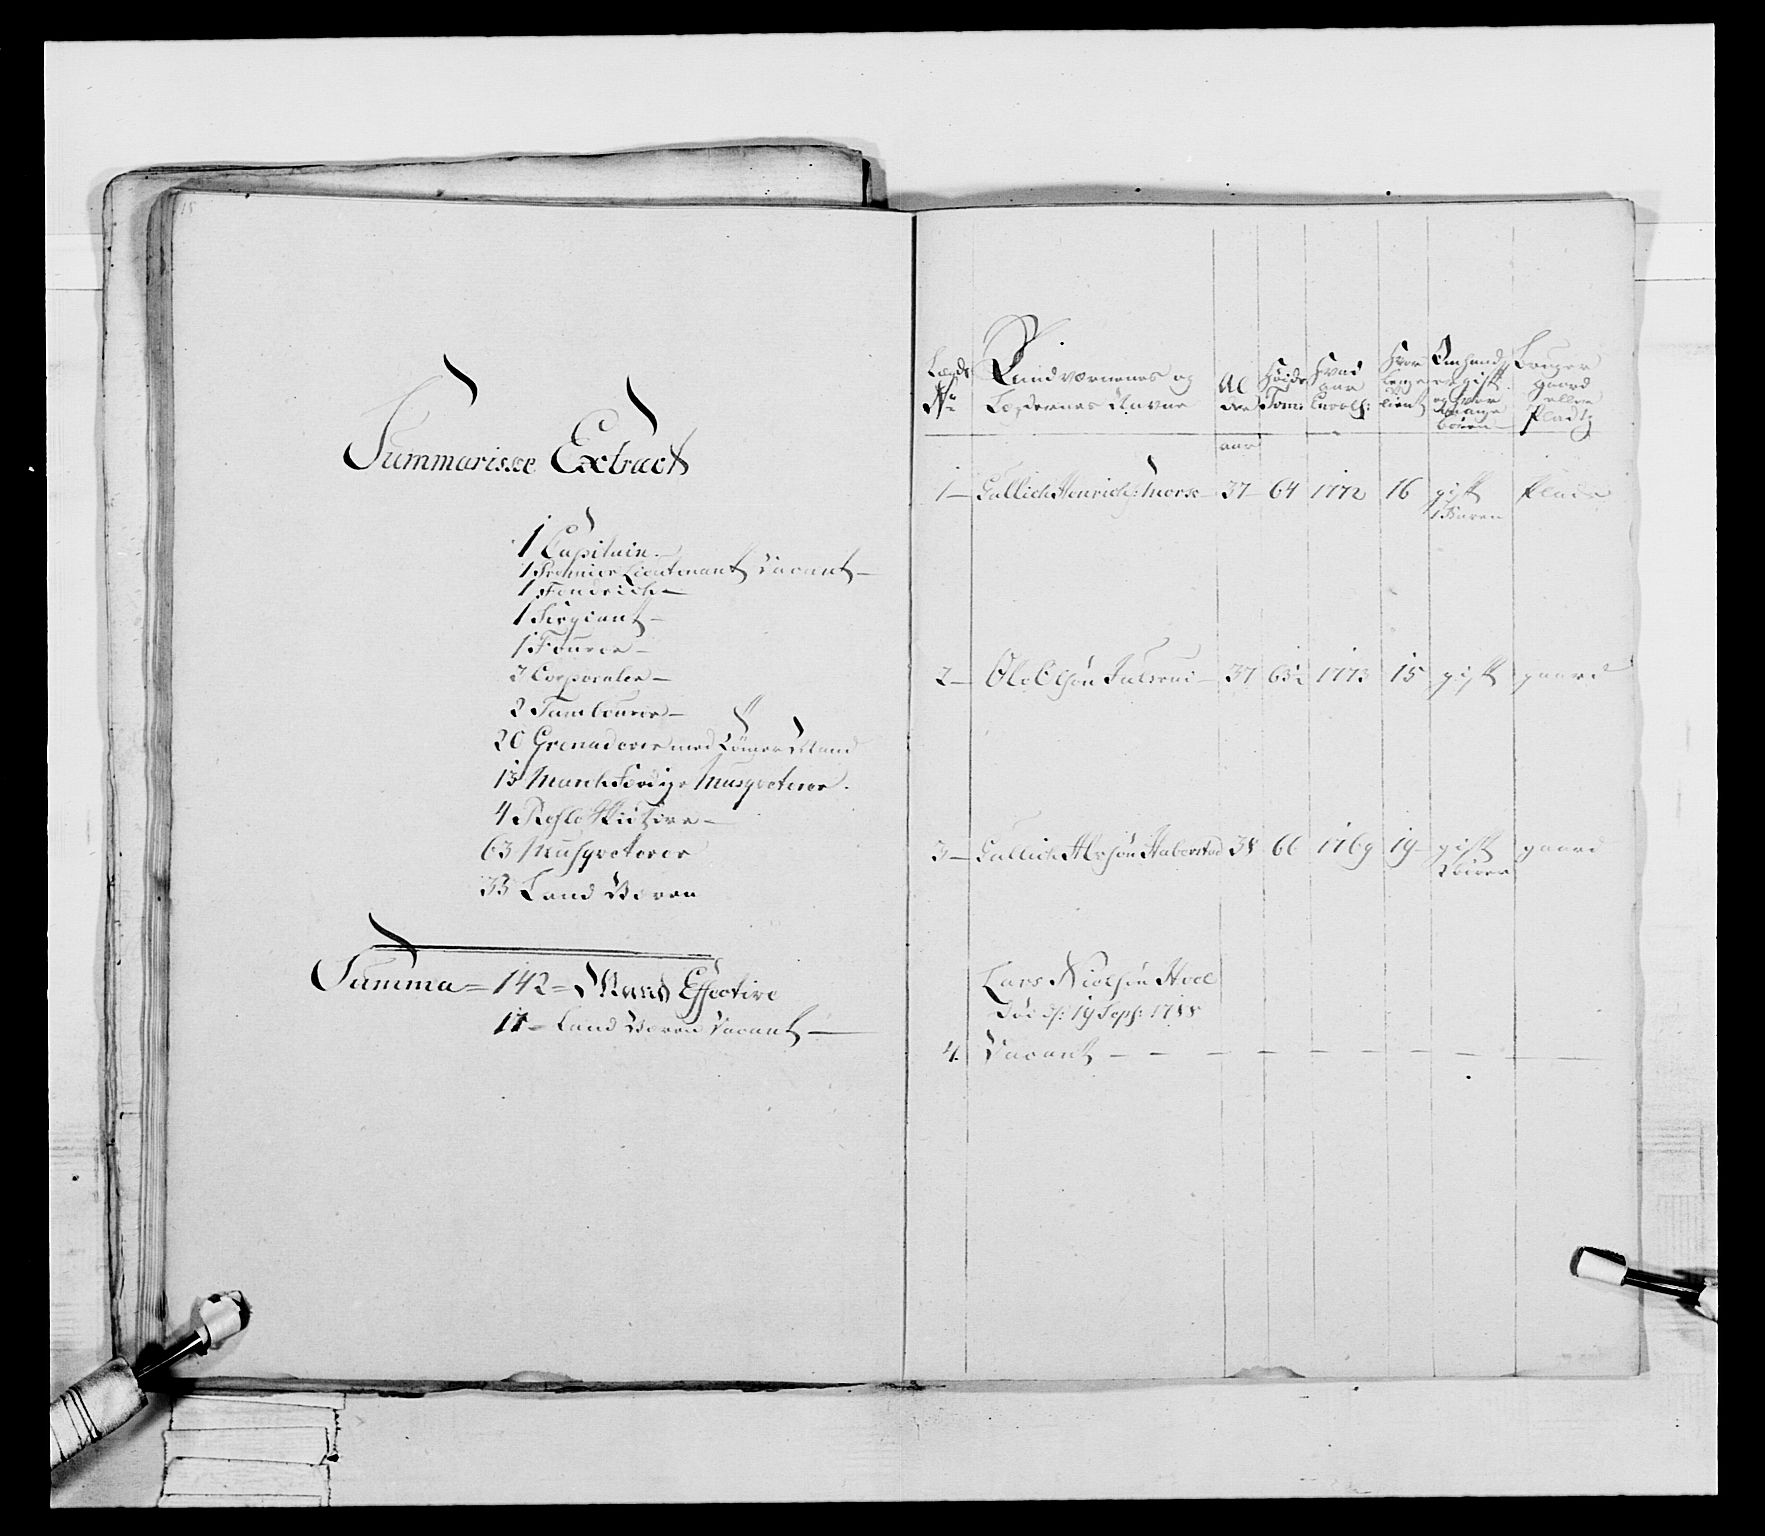 Summariske Extract
1 Capitain.
1 Premier Lieutenant Vacant
1 Fendrich
1 Sergiant
1 Fourer
3 Corporaler
2 Tambourer
20 Grenaderer med Tømer Mand
13 March Færdige Musqveterer.
4 Reflecktive
63 Musqveterer
33 Land Værn
Summa = 142 = Mand Effective
Land Væren Vacant
Lægds
No
Landværnenes og
Lægdernes Navne
Al
der
Høide
Tom:
Hvad
aar
Enroll:
Hvor
lenge
tient
Om hand
er gift
og hvor
mange
børen
Bruger
gaard
eller
Pladtz
aar
1 Gullich Henrichs: 37 64 1772 16 gift Plads
1 Baren
2 Ole Olsøn Julsrud 37 63½ 1773 15 gift gaard
3 Gullich Haberstad 38 66 1769 19 gift gaard
Lars Nielsøn Hoel
Død d: 19 Sept: 1788
4. Vacant